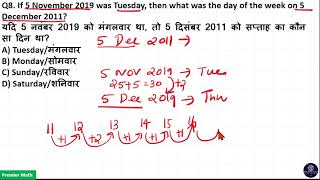 Q8. If 5 November 2019 was Tuesday, then what was the day of the week on 5
December 2011?
यदि 5 नवंबर 2019 को मंगलवार था, तो 5 दिसंबर 2011 को सप्ताह का कौन
सा दिन था?
A) Tuesday/मंगलवार
B) Monday/सोमवार
C) Sunday/रविवार
D) Saturday/शनिवार
5 Dec 2011 →
5 NOV 2019 → Tue
25+5=30 )+2
5 Dec 2019 → Thu
11 12 13 14 15 16
+1 +2 +1 +1 +1
Premier Math